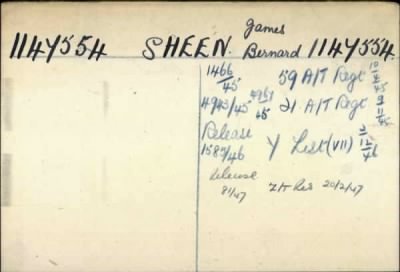 1147554 SHEEN. James Bernard 1147554.
1466/45 59 A/T Regt 10/4/45
4943/45 4951/45 21 A/T Regt 9/11/45
Release
1580/46 Y List (VII) 2/12/46
Release
81/47 Z/t Res 20/2/47